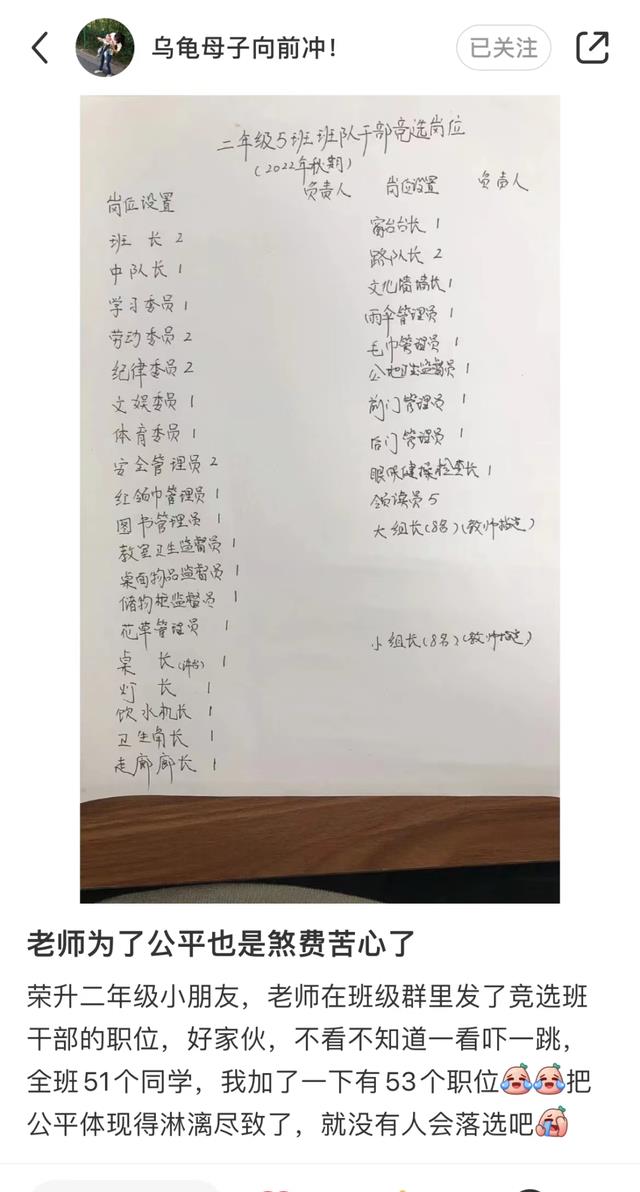 乌龟母子向前冲！
已关注
二年级5班班队干部竞选岗位
(2022年秋期)
岗位设置 负责人
班 长 2
中队长 1
学习委员 1
劳动委员 2
纪律委员 2
文娱委员 1
体育委员 1
安全管理员 2
红领巾管理员 1
图书管理员 1
教室卫生监督员 1
桌面物品监督员 1
储物柜监督员 1
花草管理员 1
桌 长(讲台) 1
灯 长 1
饮水机长 1
卫生角长 1
走廊廊长 1
岗位设置 负责人
窗台台长 1
路队长 2
文化墙墙长 1
雨伞管理员 1
毛巾管理员 1
公地卫生监督员 1
前门管理员 1
后门管理员 1
眼保健操检查长 1
领读员 5
大组长(8名)(教师指定)
小组长(8名)(教师指定)
老师为了公平也是煞费苦心了
荣升二年级小朋友，老师在班级群里发了竞选班
干部的职位，好家伙，不看不知道一看吓一跳，
全班51个同学，我加了一下有53个职位把
公平体现得淋漓尽致了，就没有人会落选吧